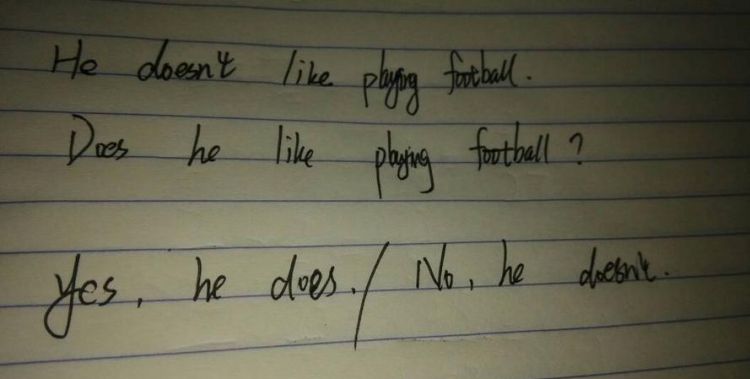 He doesn't like playing football.
Does he like playing football?
Yes, he does. / No, he doesn't.